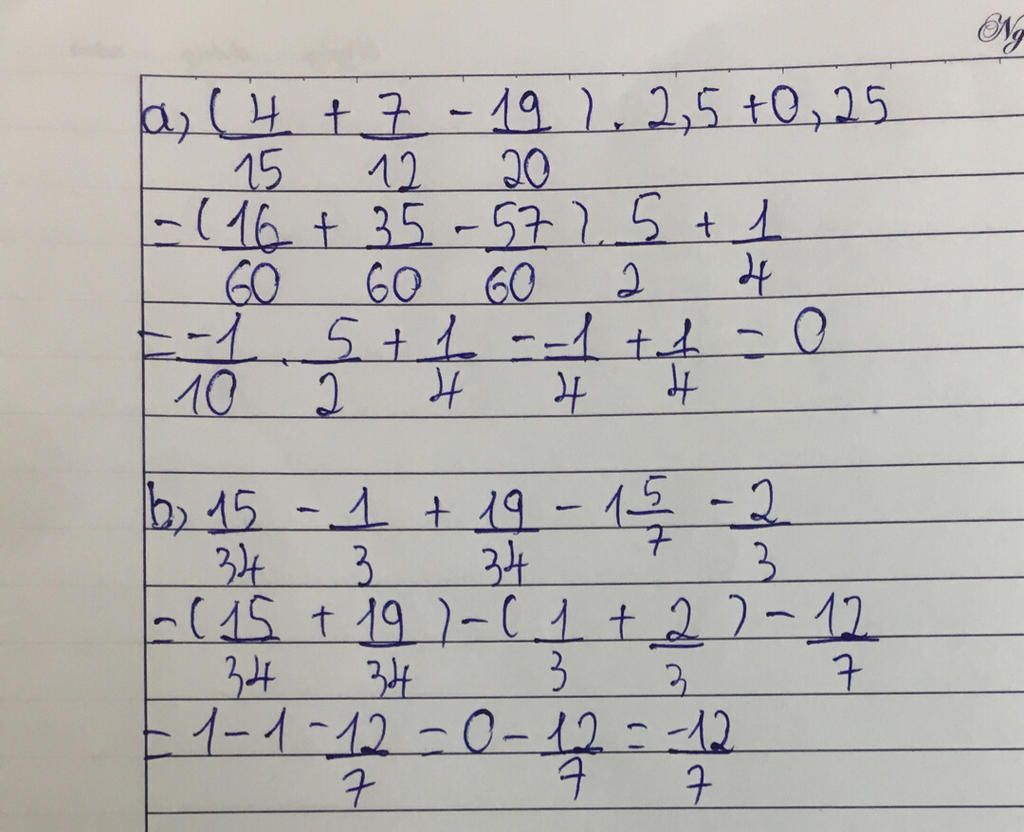 Ng
a, (4/15 + 7/12 - 19/20). 2,5 + 0,25
= (16/60 + 35/60 - 57/60). 5/2 + 1/4
= -1/10 . 5/2 + 1/4 = -1/4 + 1/4 = 0
b, 15/34 - 1/3 + 19/34 - 1 5/7 - 2/3
= (15/34 + 19/34) - (1/3 + 2/3) - 12/7
= 1 - 1 - 12/7 = 0 - 12/7 = -12/7